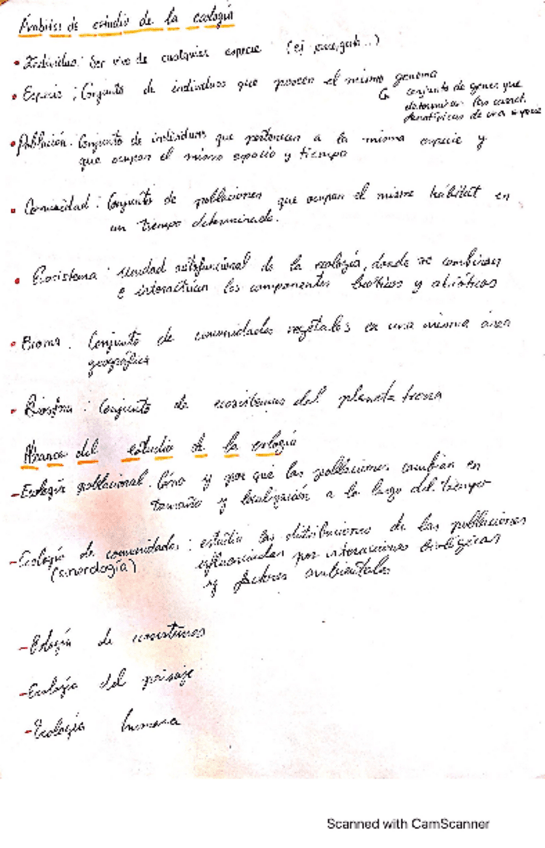 Ámbitos de estudio de la ecología
• Individuo: Ser vivo de cualquier especie (ej
• Especie: Conjunto de individuos que poseen el mismo genoma
conjunto de genes que
determinan las caract.
fenotípicas de una especie
• Población: Conjunto de individuos que pertenecen a la misma especie y
que ocupan el mismo espacio y tiempo
• Comunidad: Conjunto de poblaciones que ocupan el mismo hábitat en
un tiempo determinado.
• Ecosistema: unidad de la ecología, donde se combinan
e interactúan los componentes bióticos y abióticos
• Bioma: Conjunto de comunidades vegetales en una misma área
geográfica
• Biosfera: Conjunto de ecosistemas del planeta tierra
Avance del estudio de la ecología
-Ecología poblacional. Cómo y por qué las poblaciones cambian en
tamaño y localización a lo largo del tiempo
-Ecología de comunidades: estudia las distribuciones de las poblaciones
(sinecología) influenciadas por interacciones biológicas
y factores ambientales
-Ecología de ecosistemas
-Ecología del paisaje
-Ecología humana
Scanned with CamScanner